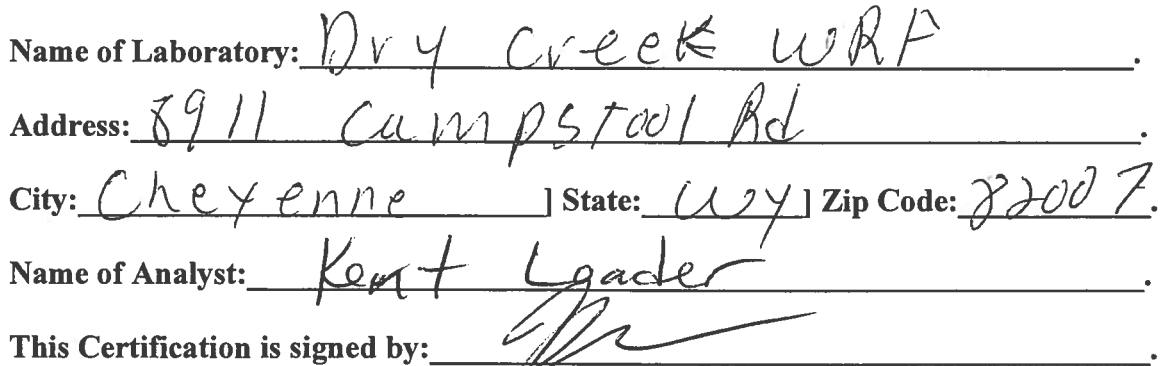 Name of Laboratory: Dry Creek WRF.
Address: 8911 Campstool Rd.
City: Cheyenne ] State: WY ] Zip Code: 82007.
Name of Analyst: Kent Leader.
This Certification is signed by: .